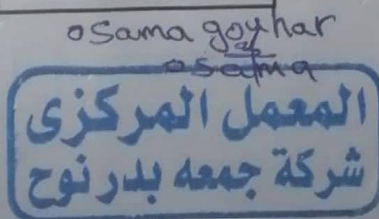 osama goyhar
osama
المعمل المركزى
شركة جمعه بدر نوح